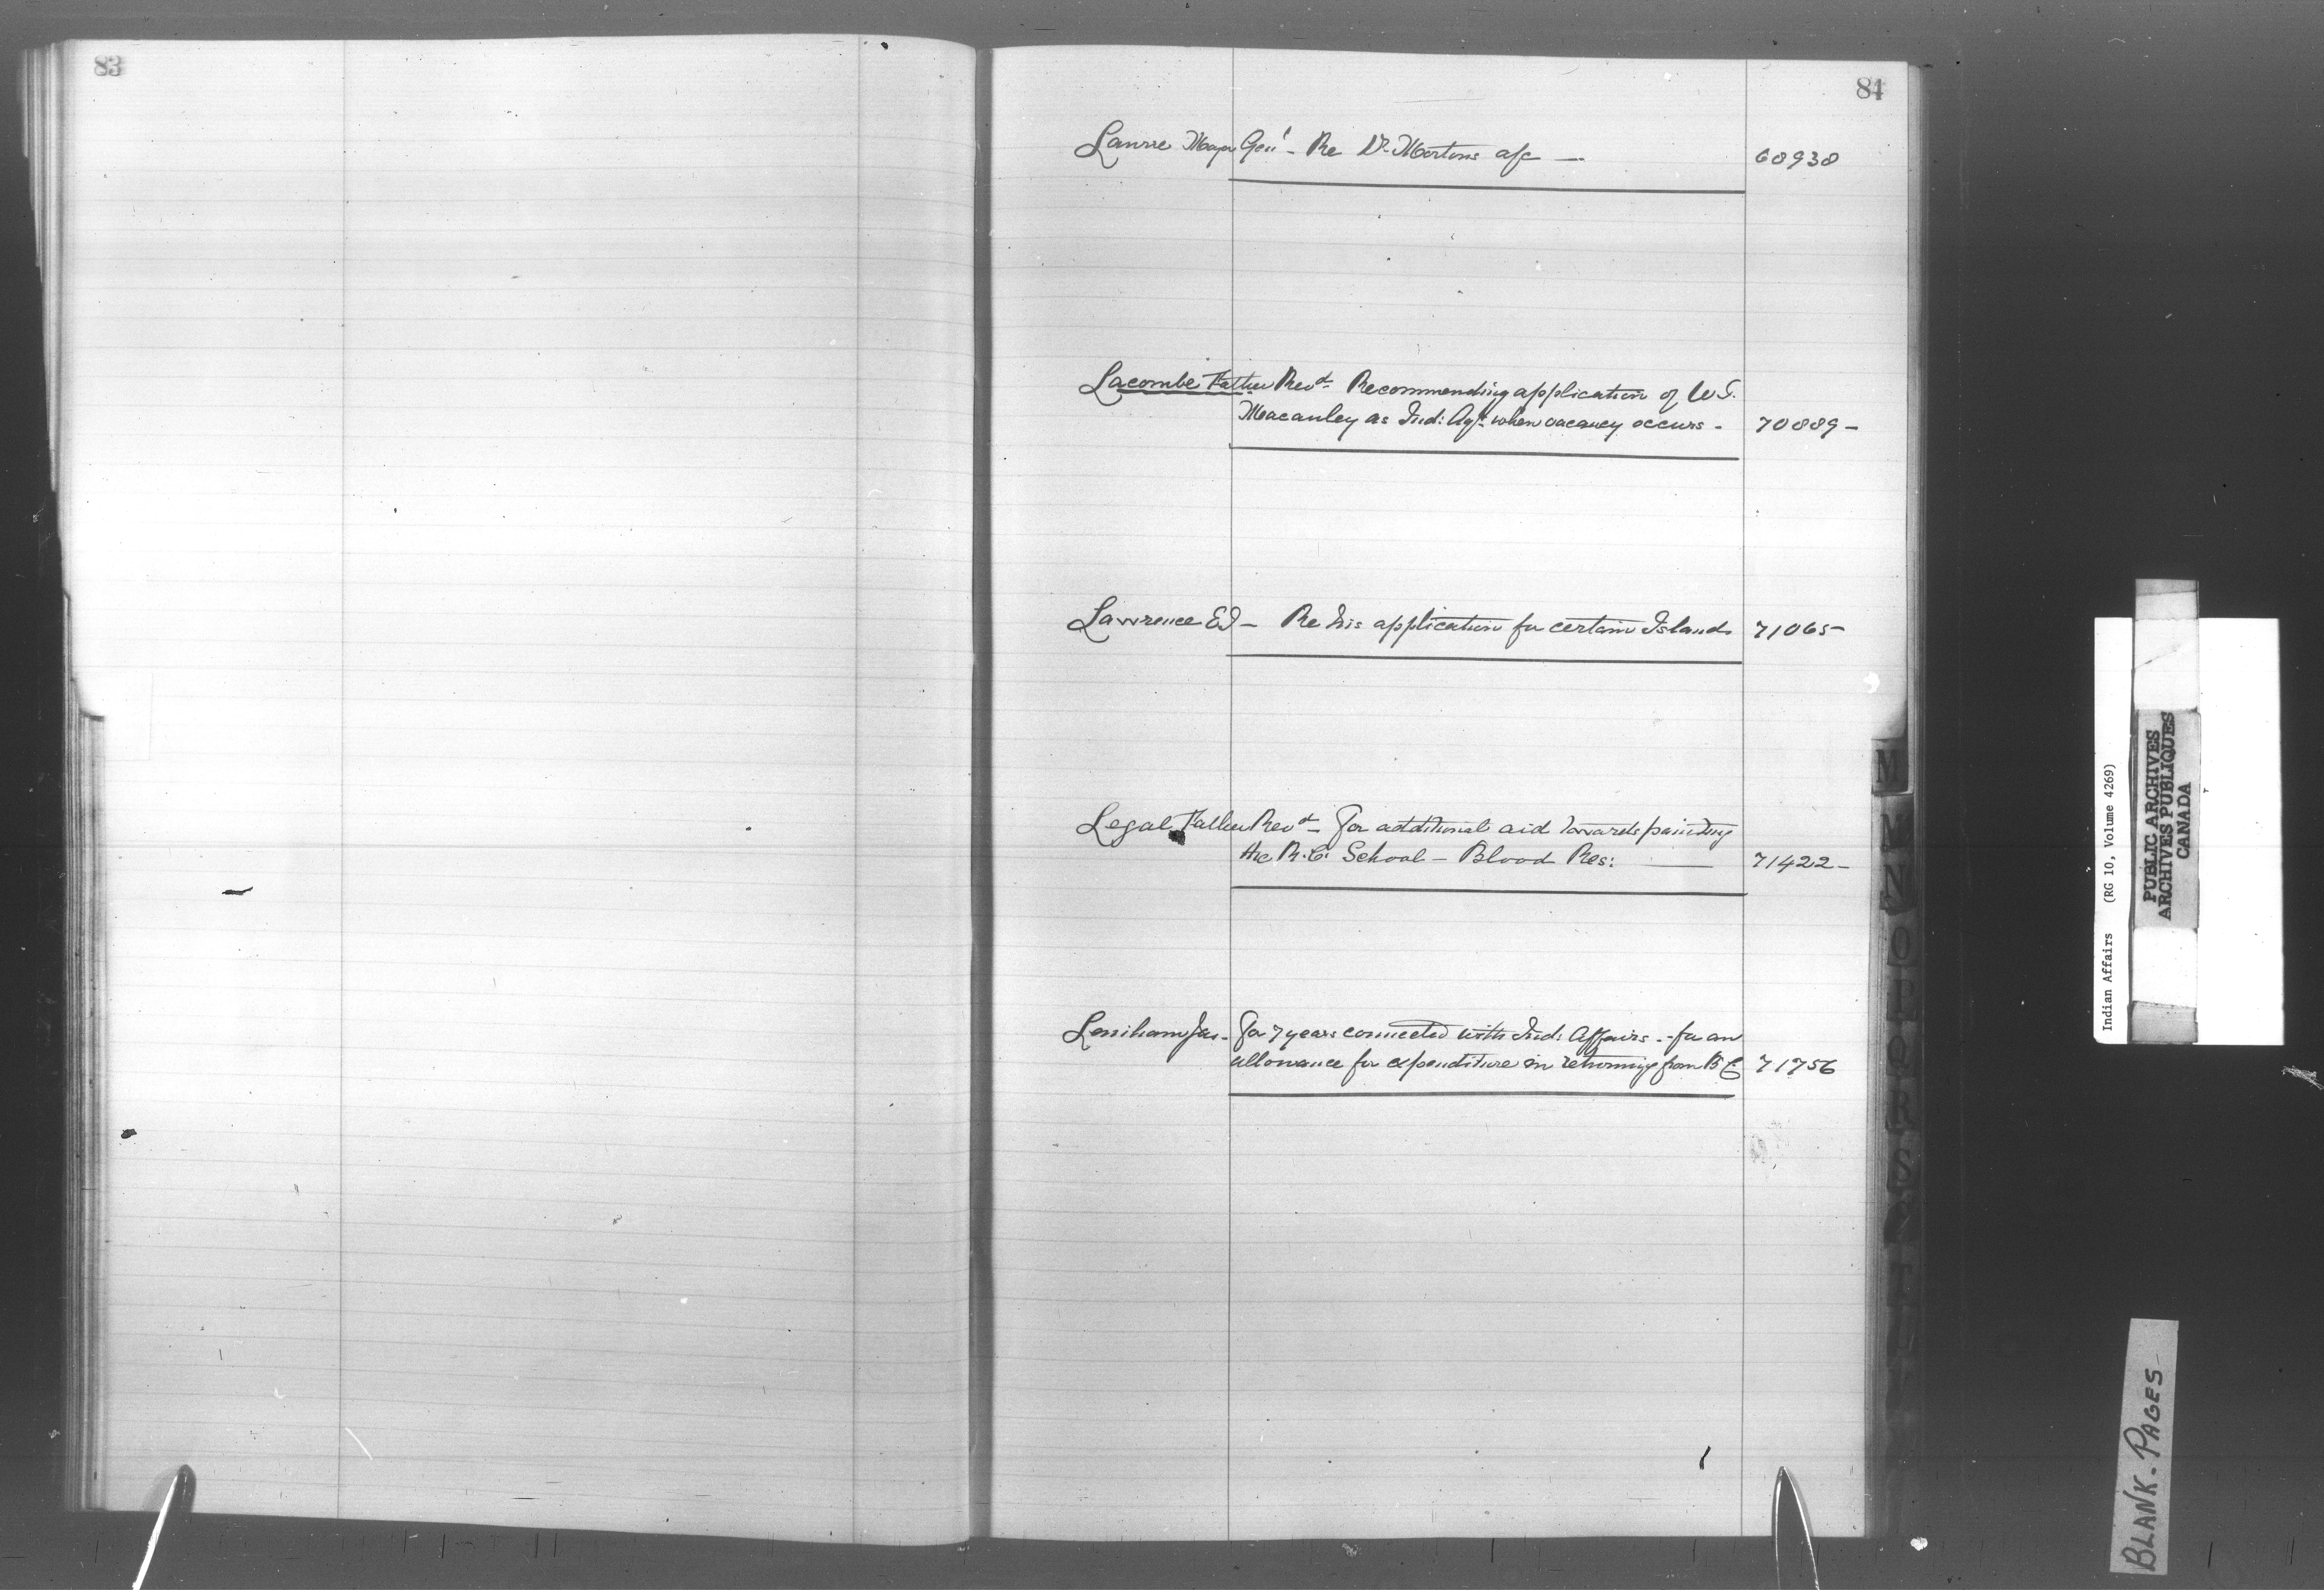 83
84
Laurie Major Genl - Re Dr. Mortons a/c — 68938
Lacombe Father Revd. Recommending application of W S.
Macauley as Ind: Agt. when vacancy occurs - 70889 -
Lawrence Ed - Re his application for certain Islands 71065 -
Legal Father Revd - For additional aid towards painting
the R.C. School - Blood Res: — 71422 -
Lenihan Jas - For 7 years connected with Ind: Affairs - for an
allowance for expenditure in returning from B C 71756
M
M
N
O
P
Q
R
S
T
U
Indian Affairs (RG 10, Volume 4269)
PUBLIC ARCHIVES
ARCHIVES PUBLIQUES
CANADA
BLANK - PAGES -